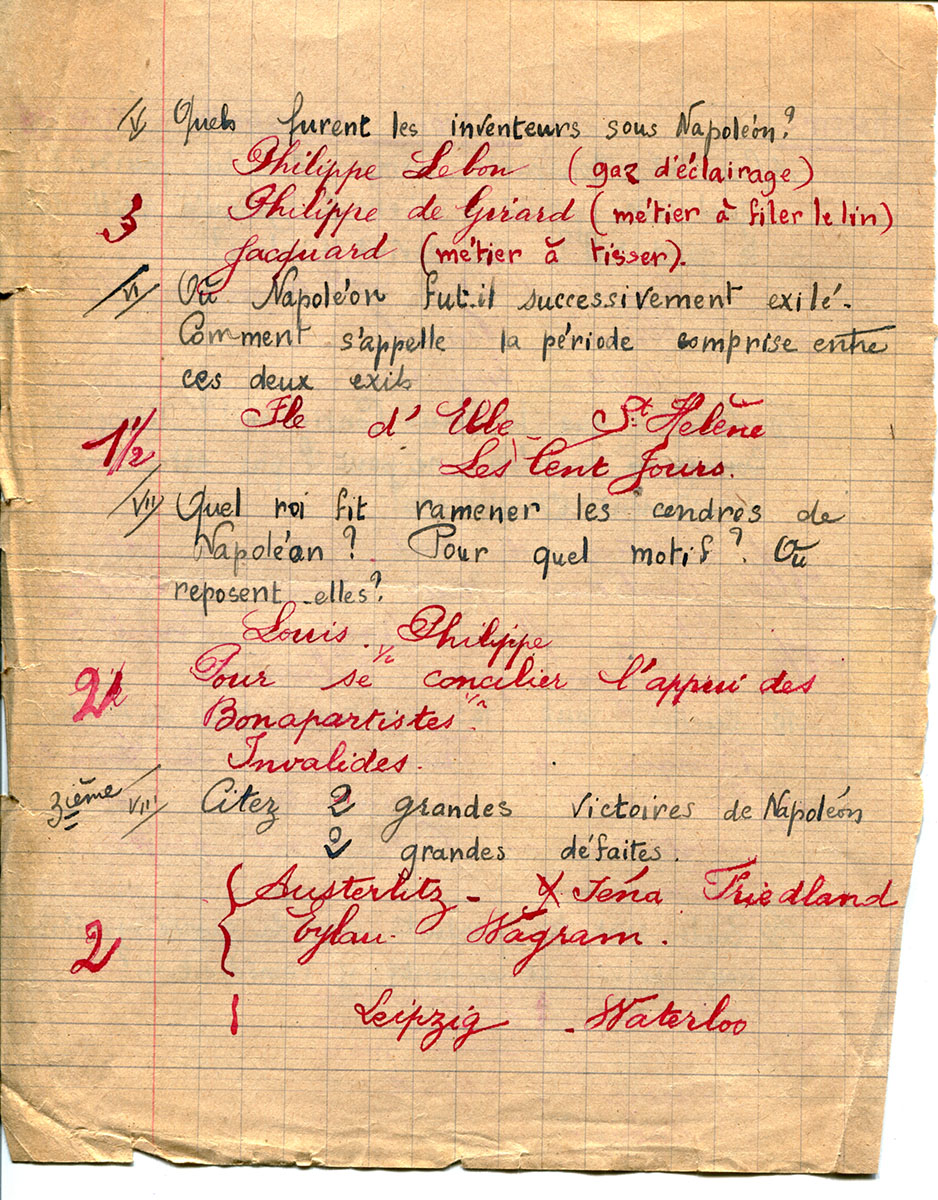 V Quels furent les inventeurs sous Napoléon?
Philippe Lebon (gaz d'éclairage)
3 Philippe de Girard (métier à filer le lin)
Jacquard (métier à tisser).
VI Où Napoléon fut-il successivement exilé.
Comment s'appelle la période comprise entre
ces deux exils
Ile d'Elbe St Helène
1 1/2 Les Cent Jours.
VII Quel roi fit ramener les cendres de
Napoléan ? Pour quel motif ? Où
reposent-elles?
Louis Philippe
1/2
2 Pour se concilier l'appui des
Bonapartistes 1/2
Invalides.
3ième VII Citez 2 grandes victoires de Napoléon
2 grandes défaites.
Austerlitz - Iéna Friedland
2 Eylau - Wagram.
Leipzig - Waterloo